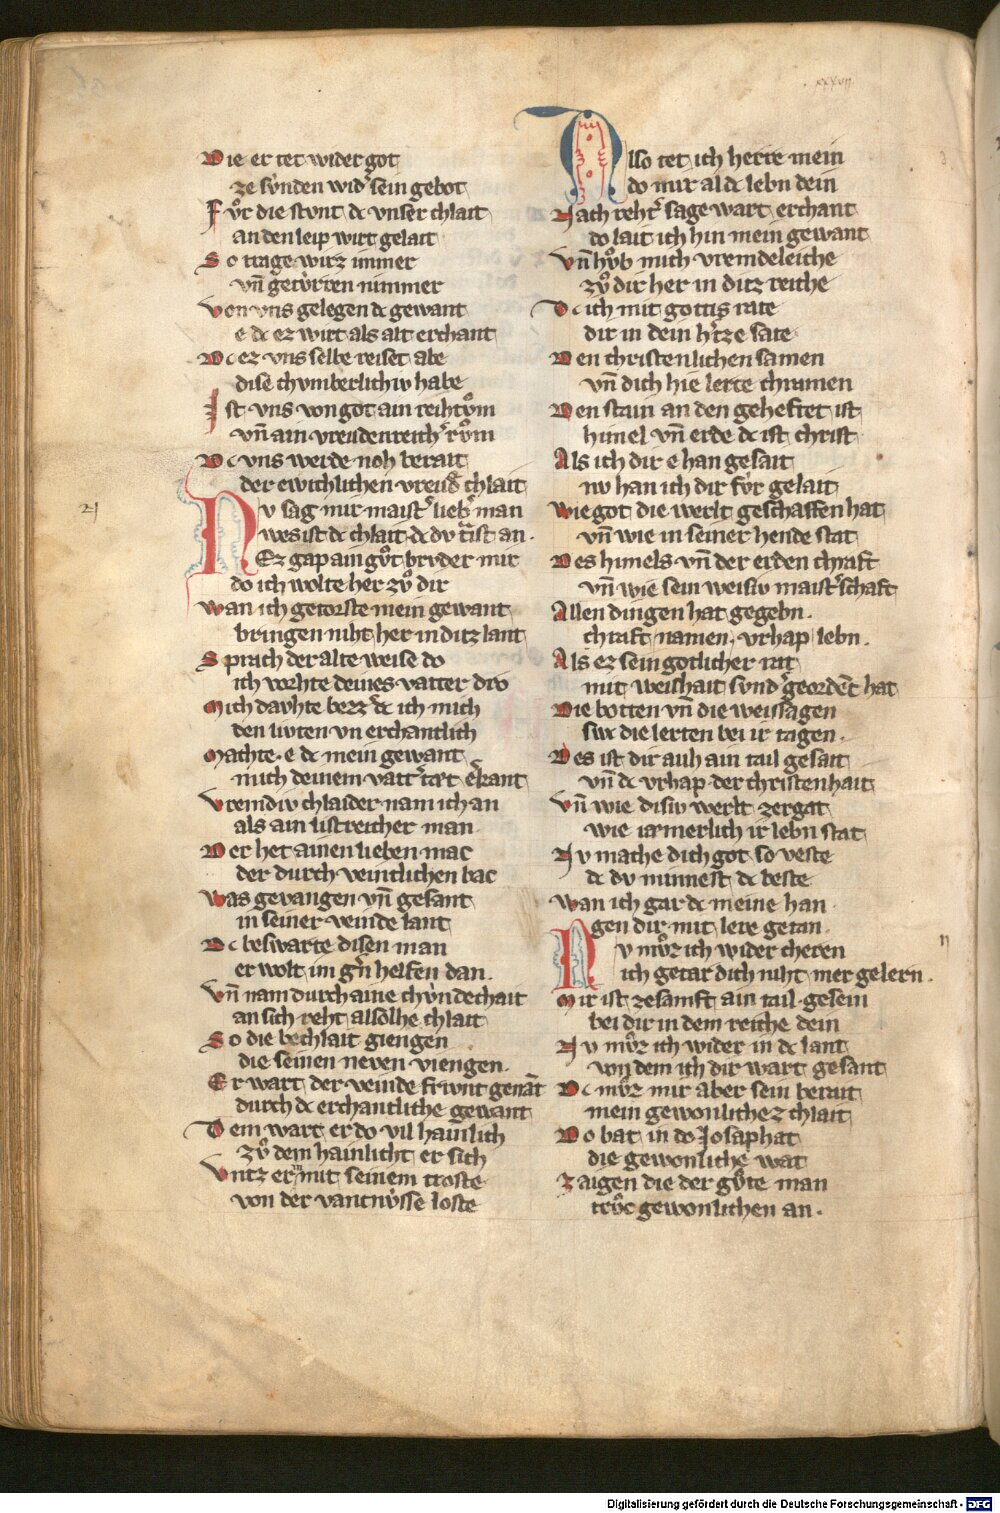 xxxvii
Die er tet wider got
ze sv̓nden wid͛ sein gebot
Fv̊r die stvnt dc vnser chlait
an den leip wirt gelait
So trage wirz immer
vn̄ getv̓rren nimmer
Von vns gelegen dc gewant
e dc ez wirt als alt erchant
Dc ez vns selbe reiset abe
dise chvmberlichiv habe
Ist vns von got ain reihtv̊m
vn̄ ain vreudenreich͛ rv̊m
Dc vns werde noh berait
der ewichlichen vreud͛ chlait
Nv sag mir maist͛ lieb͛ man
wes ist dc chlait dc dv treist an.
Ez gap ain gv̊t brvder mir
do ich wolte her zv̊ dir
Wan ich getorste mein gewant
bringen niht her in ditz lant
Sprach der alte weise do
ich vorhte deines vatter dro
Mich davhte bezz͛ dc ich mich
den livten vn erchantlich
Machte. e dc mein gewant
mich deinem vatt͛ tæt e͛kant
Vremdiv chlaider nam ich an
als ain listreicher man
Der het ainen lieben mac
der durch veintlichen bac
Was gevangen vn̄ gesant
in seiner veinde lant
Dc beswarte disen man
er wolt im g͛n helfen dan.
Vn̄ nam durch aine chv̓ndechait
an sich reht alsolhe chlait
So die bechlait giengen
die seinen neven viengen.
Er wart der veinde frivnt genāt
durch dc erchantliche gewant
Dem wart er do vil hainlich
zv̊ dem hainlicht er sich
Vntz er in mit seinem troste
von der vancnv̓sse loste
Also tet ich herre mein
do mir al dc lebn dein
Nach reht͛ sage wart erchant
do lait ich hin mein gewant
Vn̄ hv̊b mich vremdeleiche
zv̊ dir her in ditz reiche
Dc ich mit gottis rate
dir in dein h͛tze sate
Den christenlichen samen
vn̄ dich hie lerte chramen
Den stain an den geheftet ist
himel vn̄ erde dc ist christ
Als ich dir e han gesait
nv han ich dir fv̓r gelait
Wie got die werlt geschaffen hat
vn̄ wie in seiner hende stat
Des himels vn̄ der erden chraft
vn̄ wie sein weisiv maist͛schaft
Allen dingen hat gegebn.
chraft namen. vrhap lebn.
Als ez sein gotlicher rat
mit weishait svnd͛ geordēt hat
Die botten vn̄ die weissagen
swc die lerten bei ir tagen.
Des ist dir auh ain tail gesait
vn̄ dc vrhap der christenhait
Vn̄ wie disiv werlt zergat
wie iæmerlich ir lebn stat
Nv mache dich got so veste
dc dv minnest dc beste
Wan ich gar dc meine han
gen dir mit lere getan.
Nv mv̊z ich wider cheren
ich getar dich niht mer gelern.
Mir ist ze samft ain tail gesein
bei dir in dem reiche dein
Nv mv̊z ich wider in dc lant
von dem ich dir wart gesant
Dc mv̊z mir aber sein berait
mein gewonlichez chlait
Do bat in do Josaphat
die gewonliche wat
Zaigen die der gv̊te man
trv̊c gewonlichen an.
Digitalisierung gefördert durch die Deutsche Forschungsgemeinschaft - DFG